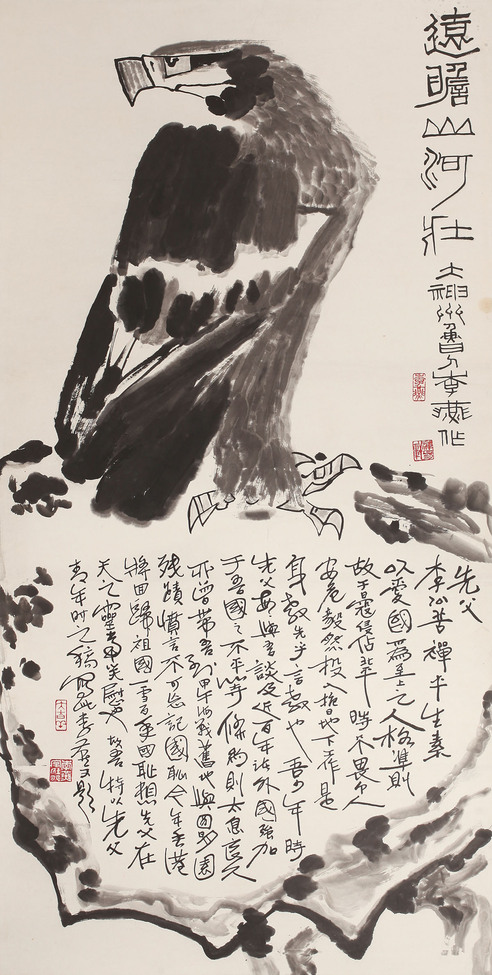 遠瞻山河壯
大神州魯人李燕作
先父
李公苦禪平生素
以愛國為至上之人格準則
故于侵佔時不畏个人
安危毅然投入抗地下工作是
身教先于言教也吾少年時
先父每與吾談及近百年諸外國強加
于吾國之不平等條約則太息良久
亦曾帶吾到甲午海戰舊地與圓明園
殘蹟憤言不可忘記國恥今年香港
將回歸祖國一雪百年國恥想先父在
天之靈當含笑慰矣故吾特以先父
青年時之稿寫此李燕又題